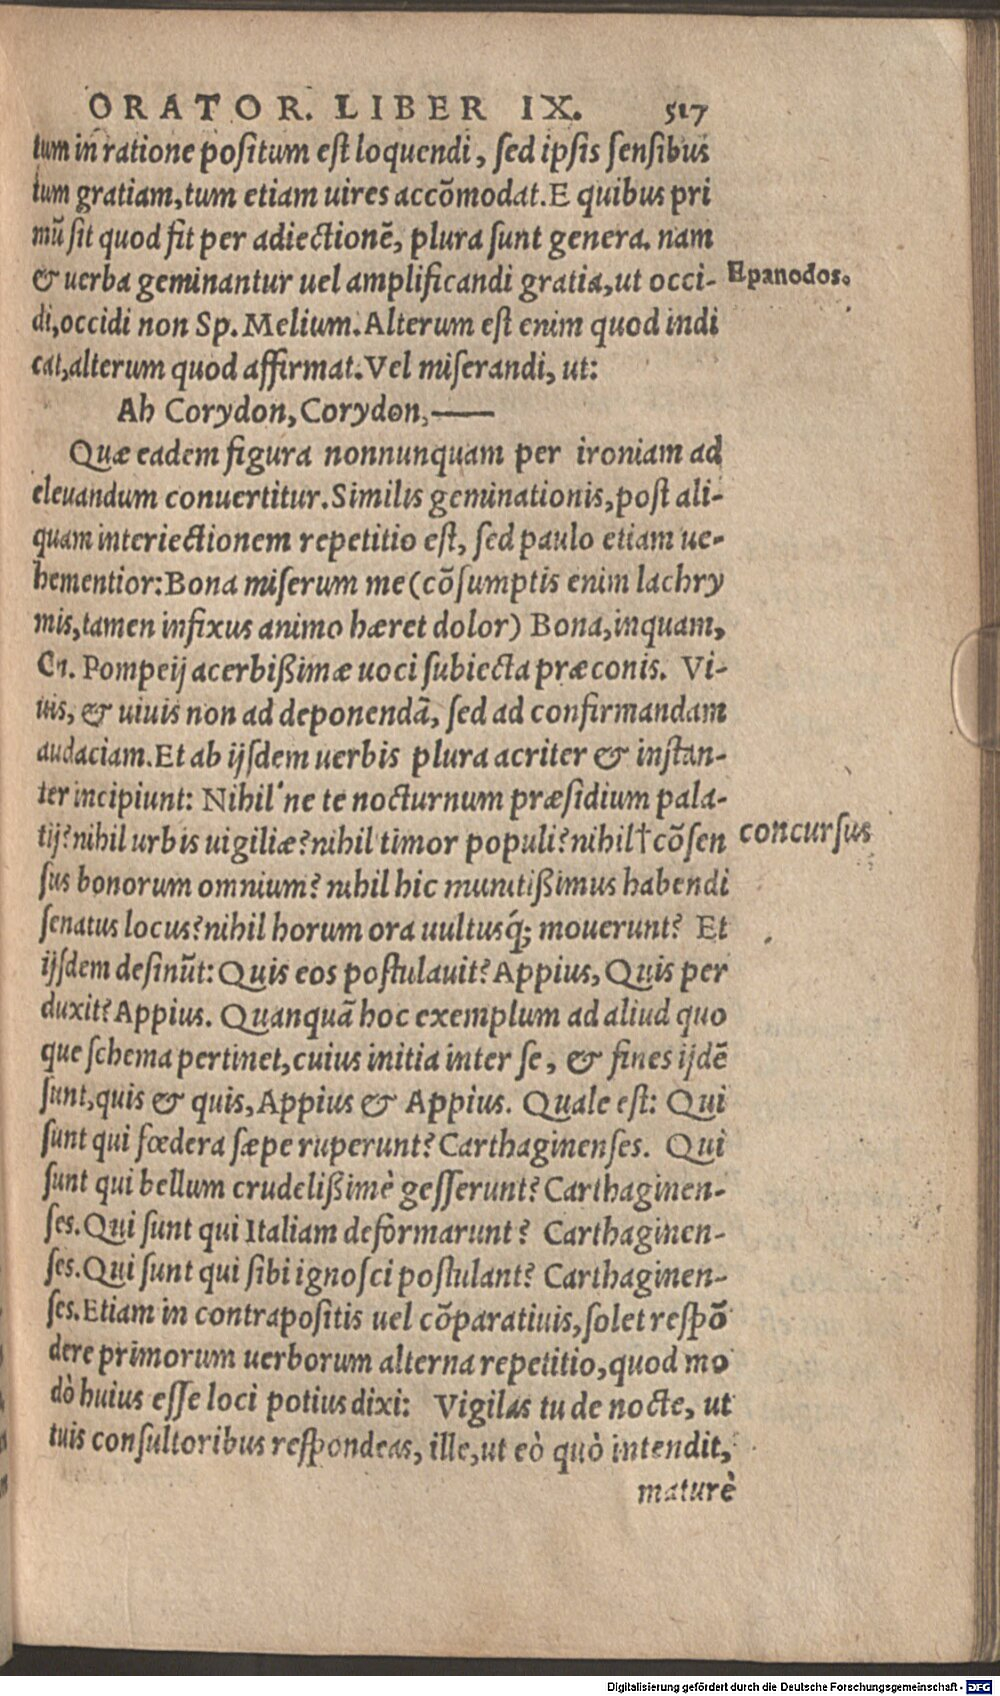 ORATOR. LIBER IX. 517
tum in ratione positum est loquendi, sed ipsis sensibus
tum gratiam, tum etiam uires accõmodat. E quibus pri
mũ sit quod fit per adiectionẽ, plura sunt genera. nam
& uerba geminantur uel amplificandi gratia, ut occi-
Epanodos.
di, occidi non Sp. Melium. Alterum est enim quod indi
cat, alterum quod affirmat. Vel miserandi, ut:
Ah Corydon, Corydon, —
Quæ eadem figura nonnunquam per ironiam ad
eleuandum conuertitur. Similis geminationis, post ali-
quam interiectionem repetitio est, sed paulo etiam ue-
hementior: Bona miserum me (cõsumptis enim lachry
mis, tamen infixus animo hæret dolor) Bona, inquam,
Cn. Pompeij acerbißimæ uoci subiecta præconis. Vi-
uis, & uiuis non ad deponendã, sed ad confirmandam
audaciam. Et ab ijsdem uerbis plura acriter & instan-
ter incipiunt: Nihil'ne te nocturnum præsidium pala-
tij? nihil urbis uigiliæ? nihil timor populi? nihil † cõsen
concursus
sus bonorum omnium? nihil hic munitißimus habendi
senatus locus? nihil horum ora uultusq́; mouerunt? Et
ijsdem desinũt: Quis eos postulauit? Appius, Quis per
duxit? Appius. Quanquã hoc exemplum ad aliud quo
que schema pertinet, cuius initia inter se, & fines ijdẽ
sunt, quis & quis, Appius & Appius. Quale est: Qui
sunt qui fœdera sæpe ruperunt? Carthaginenses. Qui
sunt qui bellum crudelißimè gesserunt? Carthaginen-
ses. Qui sunt qui Italiam deformarunt? Carthaginen-
ses. Qui sunt qui sibi ignosci postulant? Carthaginen-
ses. Etiam in contrapositis uel cõparatiuis, solet respõ
dere primorum uerborum alterna repetitio, quod mo
dò huius esse loci potius dixi: Vigilas tu de nocte, ut
tuis consultoribus respondeas, ille, ut eò quò intendit,
maturè
Digitalisierung gefördert durch die Deutsche Forschungsgemeinschaft - DFG